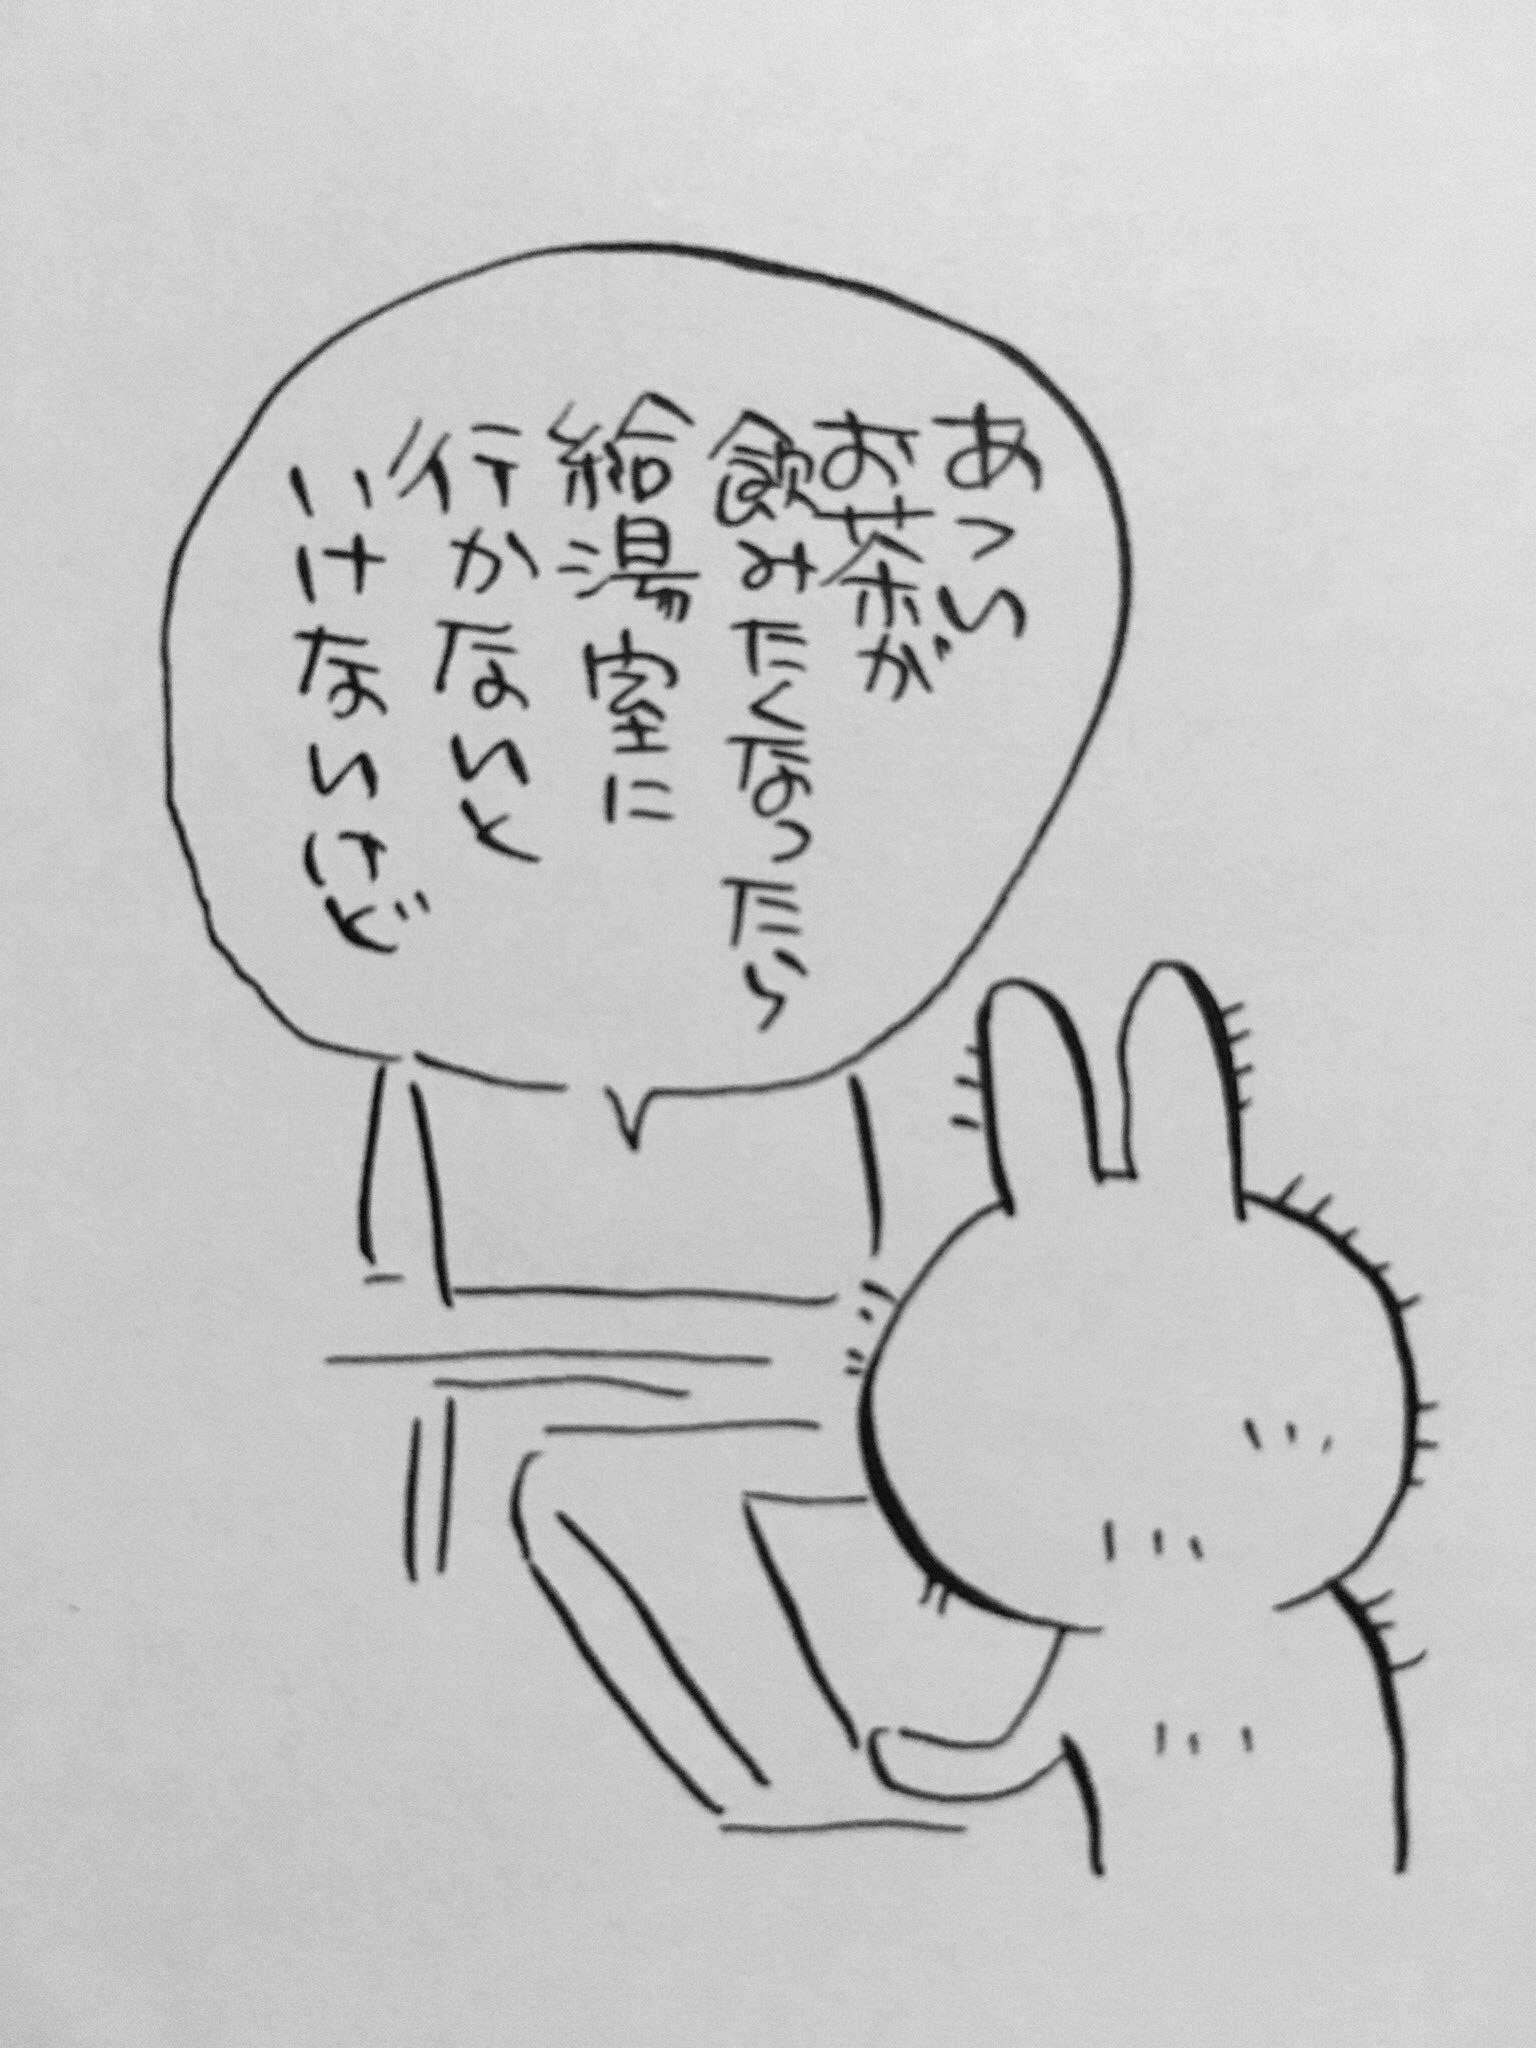 あつい
お茶が
飲みたくなったら
給湯室に
行かないと
いけないけど